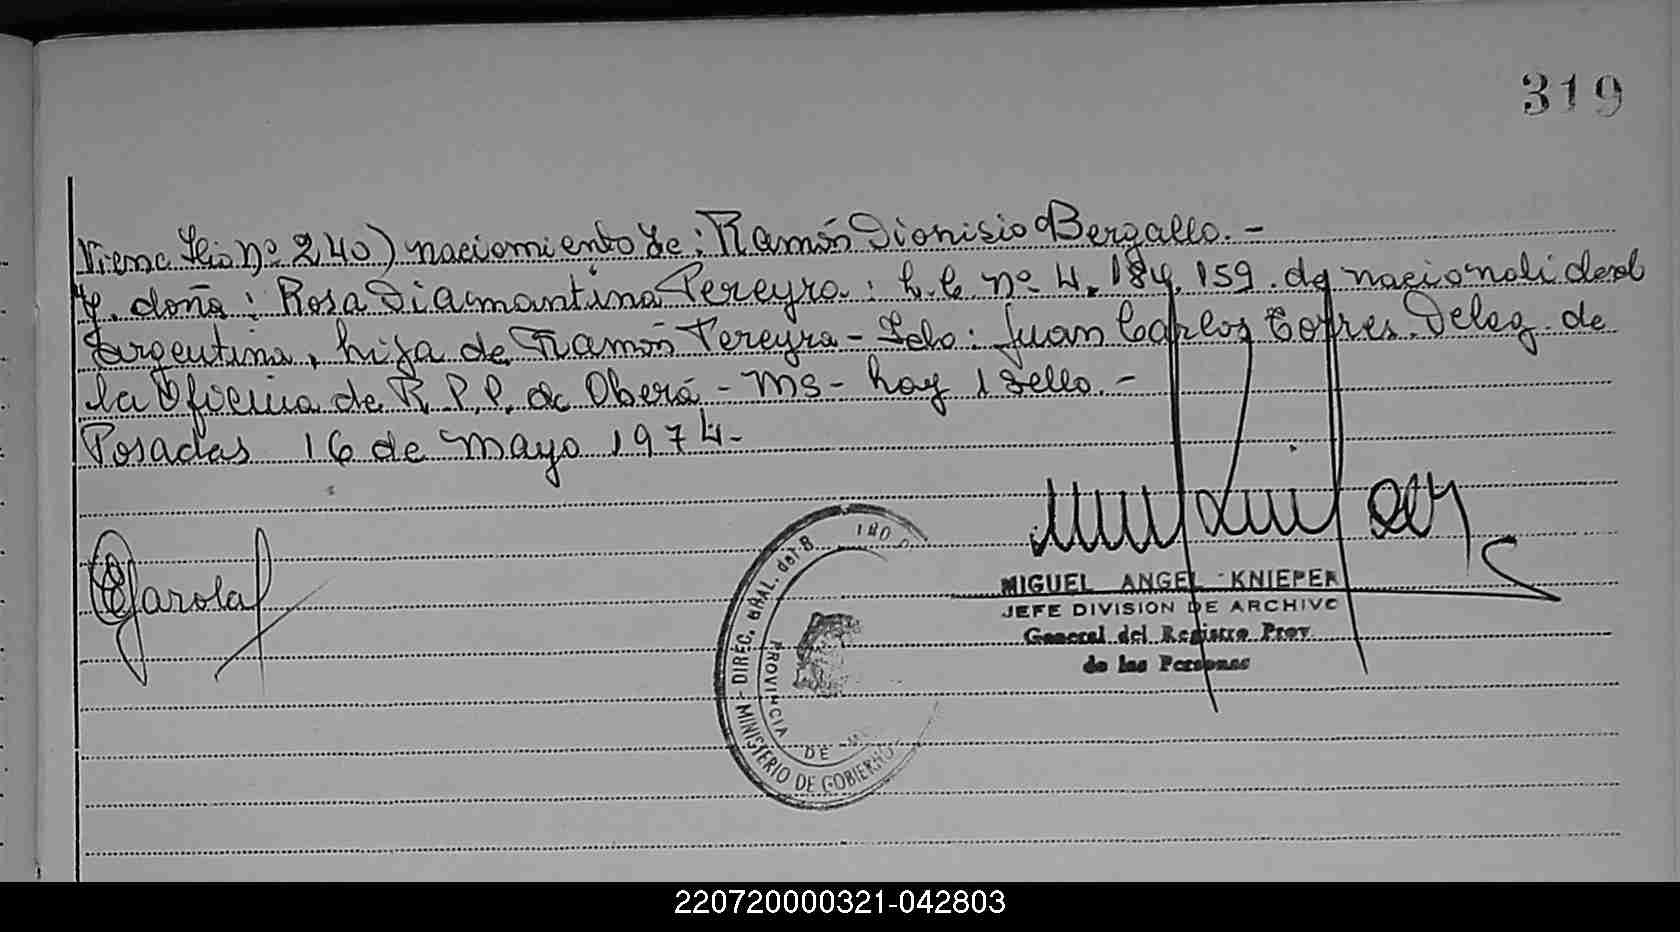 319
Viene Fo. nº 240) nacimiento de: Ramón Dionisio Bergallo.-
y. doña: Rosa Diamantina Pereyra: L.C. nº 4.184.159. de nacionalidad
argentina, hija de Ramón Pereyra - Fdo: Juan Carlos Torres. Deleg. de
la Oficina de R.P.P. de Oberá - MS - hay 1 sello.-
Posadas 16 de Mayo 1974-
MIGUEL ANGEL KNIEPER
JEFE DIVISION DE ARCHIVO
General del Registro Prov
de las Personas
MINISTERIO DE GOBIERNO - DIREC. GRAL. del
PROVINCIA DE
220720000321-042803